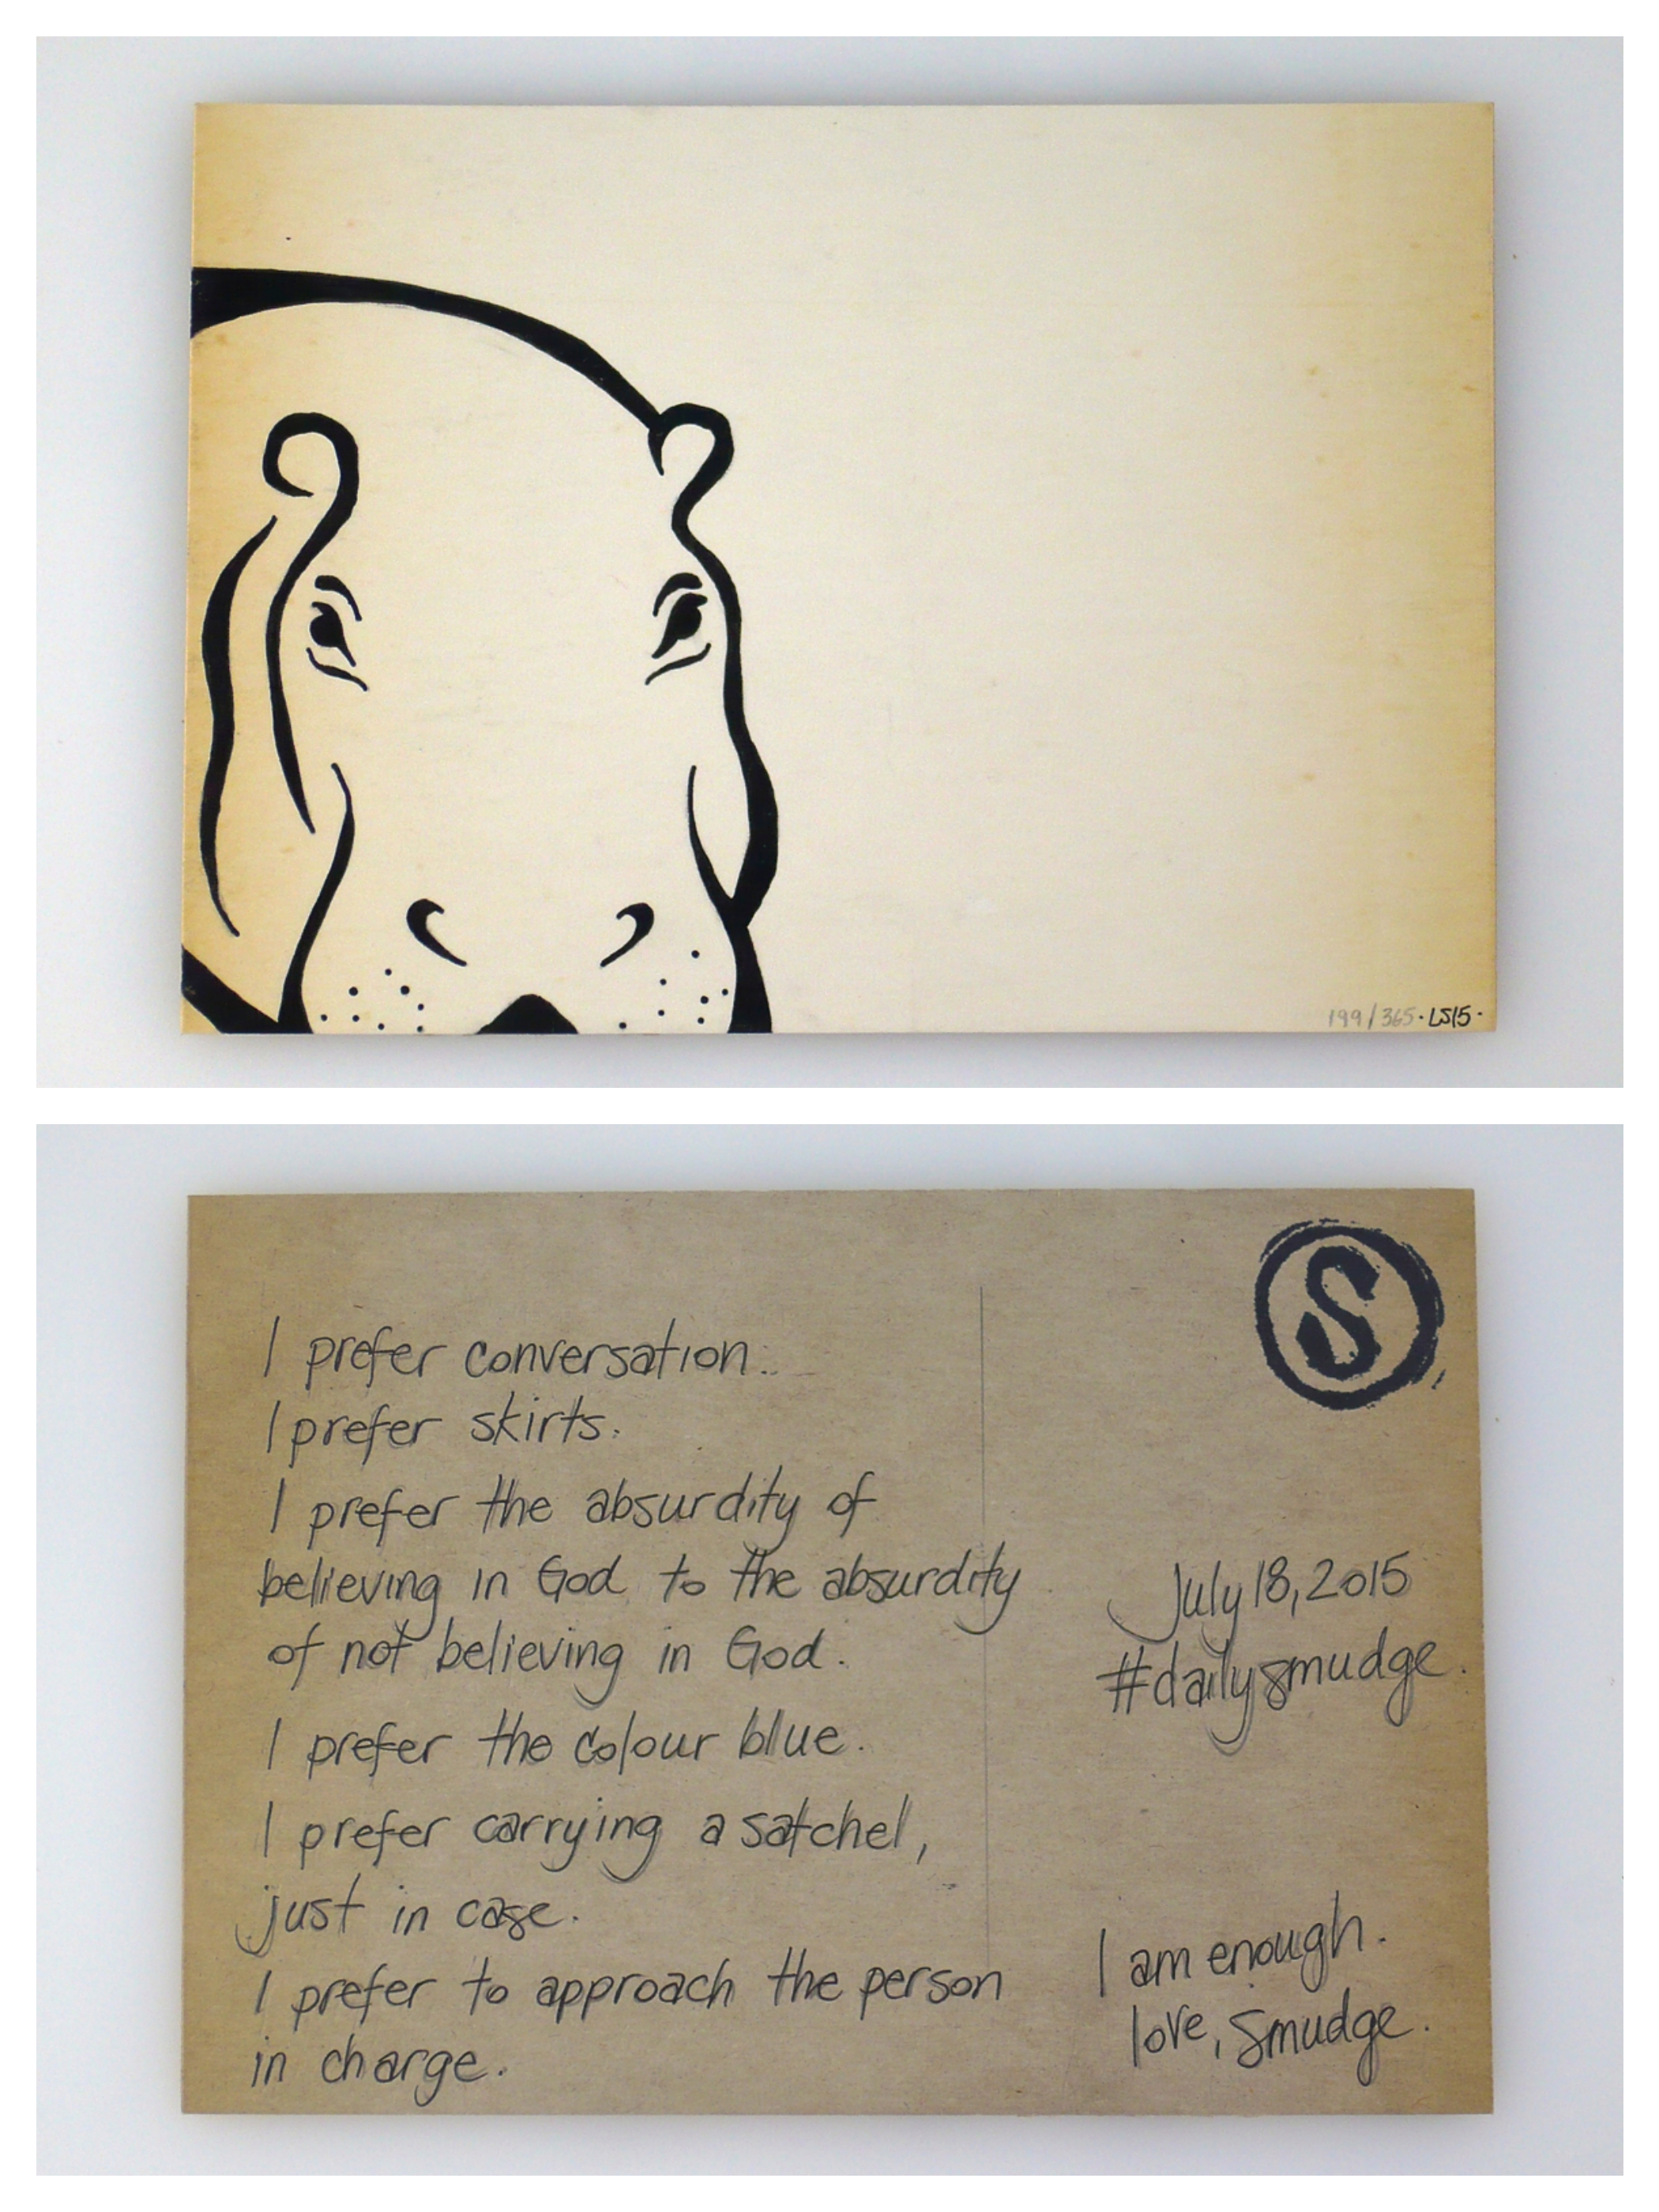 199/365 · LS15 ·
S
I prefer conversation.
I prefer skirts.
I prefer the absurdity of
believing in God to the absurdity
of not believing in God.
I prefer the colour blue.
I prefer carrying a satchel,
just in case.
I prefer to approach the person
in charge.
July 18, 2015
#dailysmudge.
I am enough.
love, Smudge.